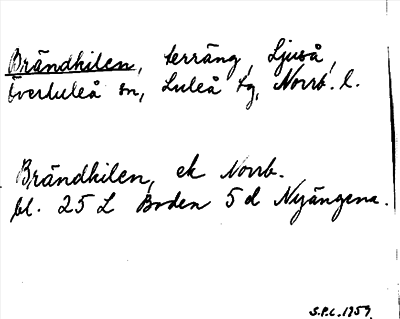 Brändkilen, terräng, Ljuså,
Överluleå sn, Luleå tg, Norrb. l.
Brändkilen, ek Norrb.
bl. 25 L Boden 5 d Nyängena.
S.P.L. 1959.